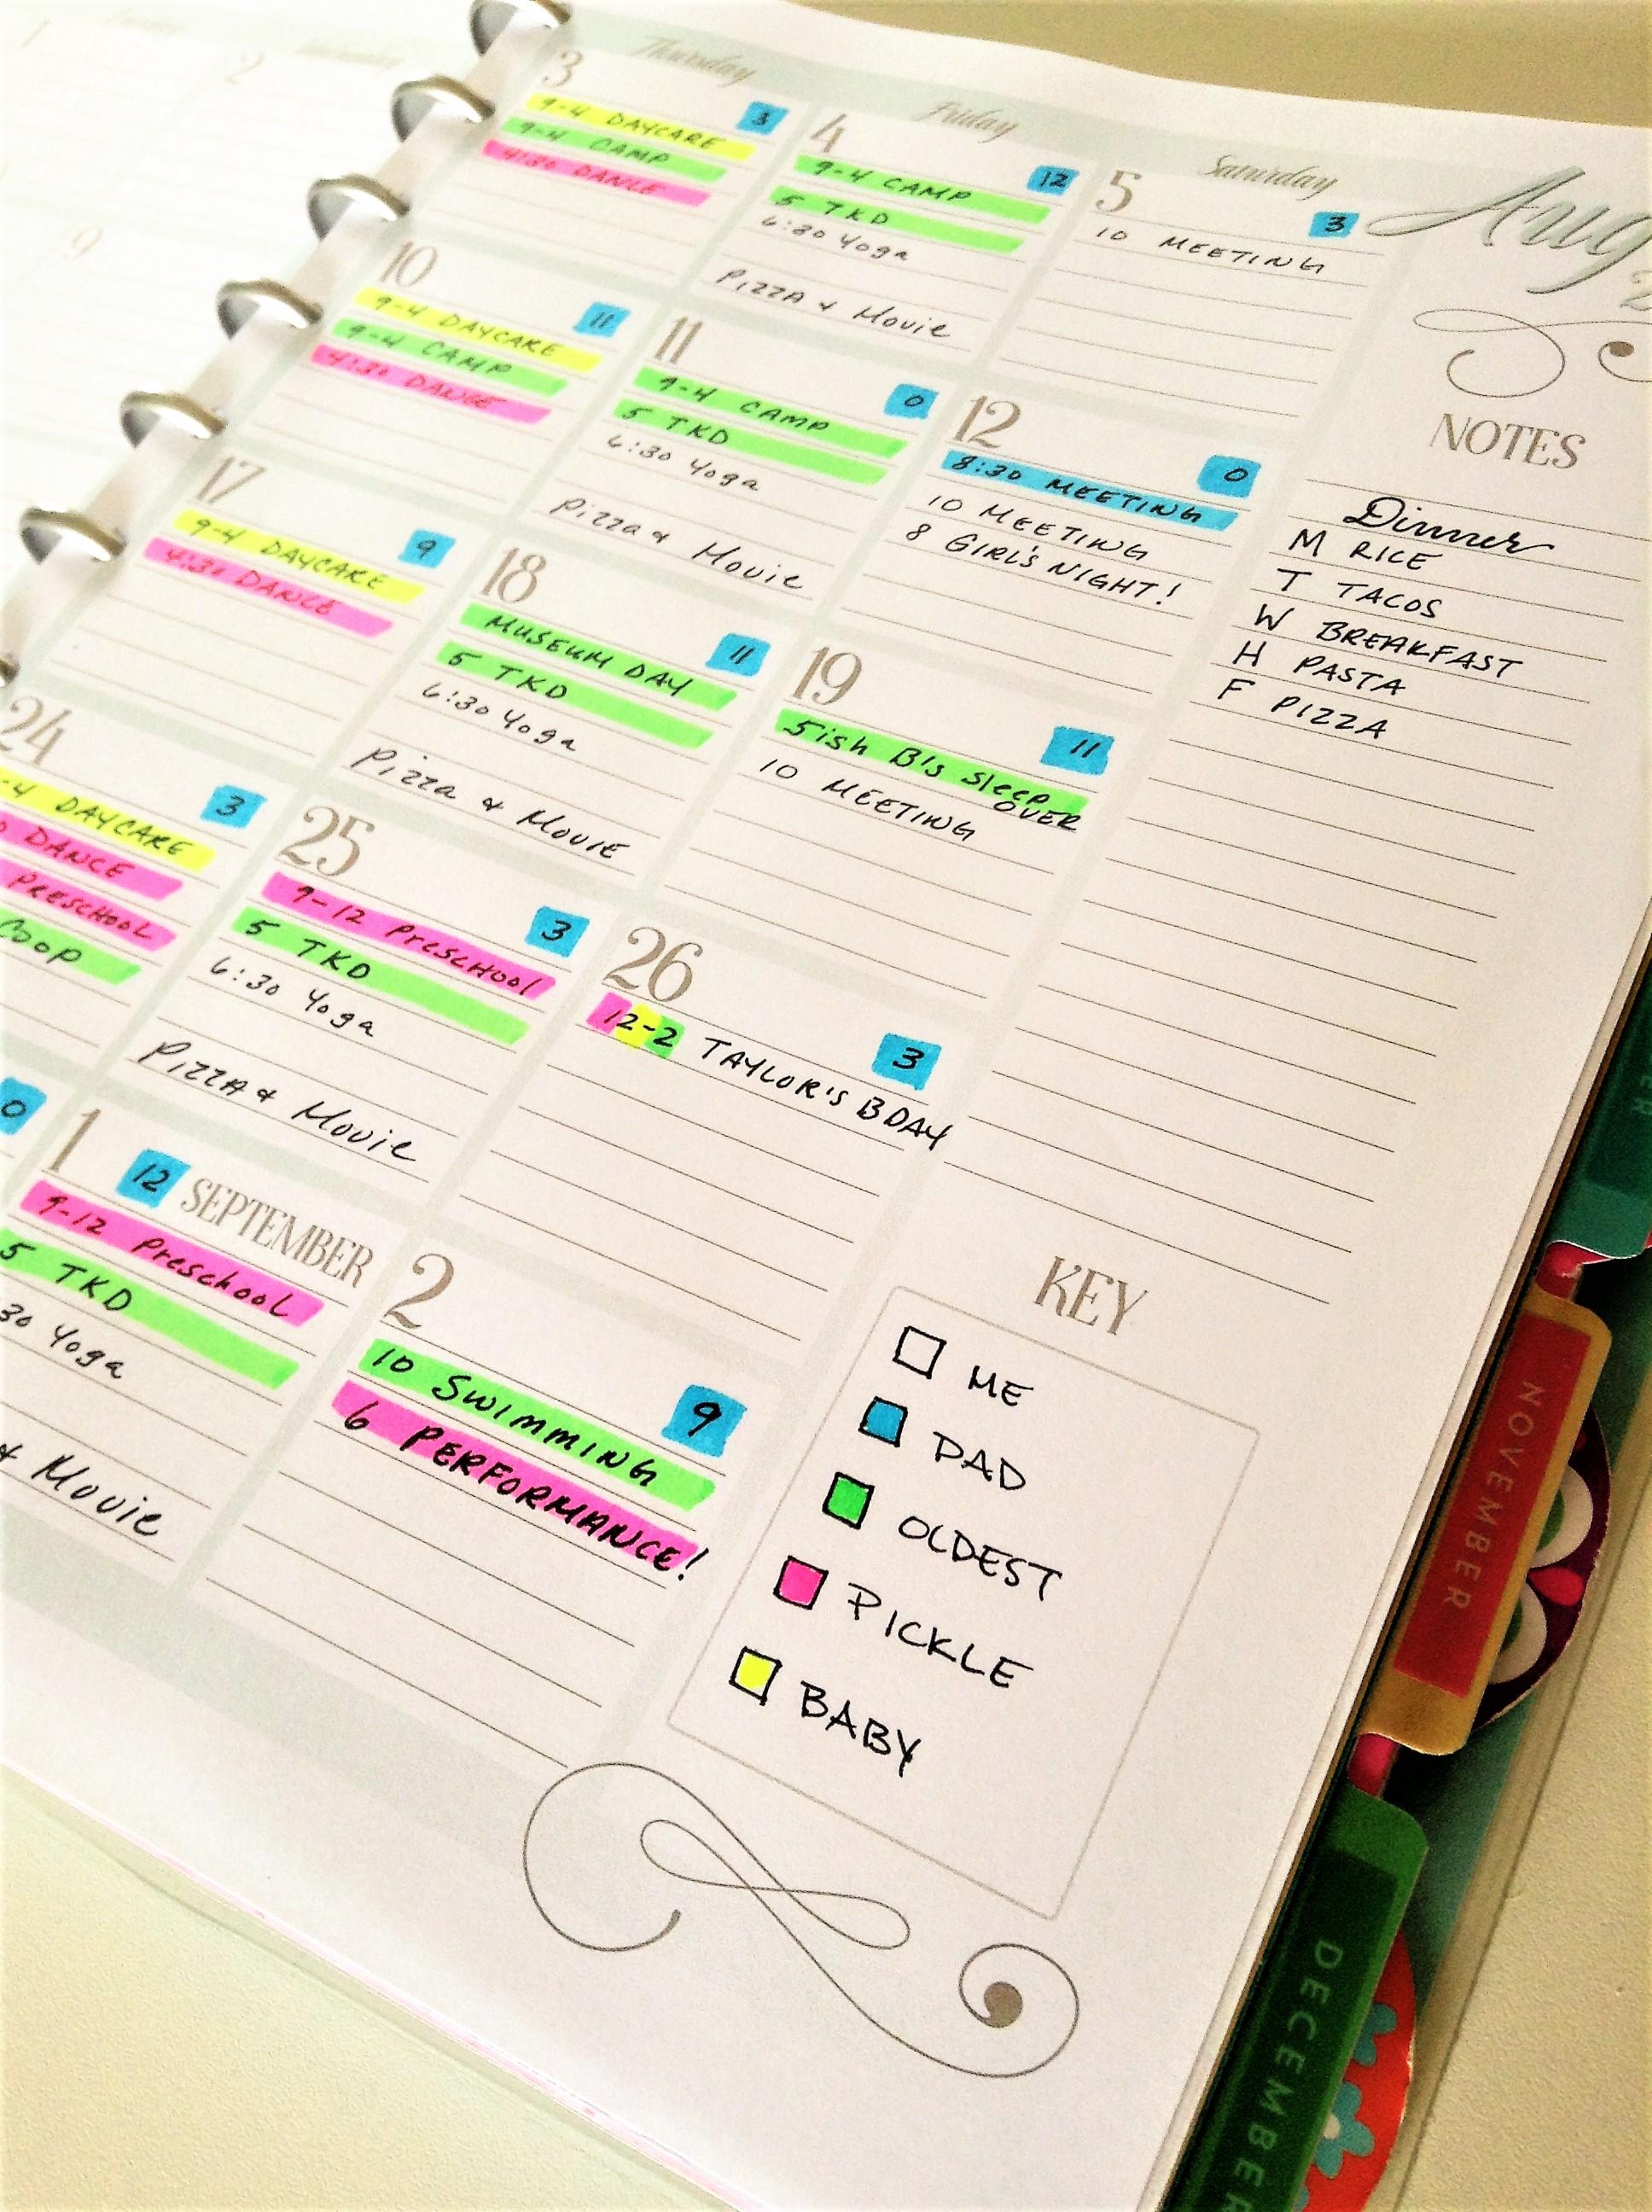 1
2
Thursday
3
3
9-4 DAYCARE
9-4 CAMP
4:30 DANCE
Friday
4
12
9-4 CAMP
5 TKD
6:30 Yoga
PIZZA & Movie
Saturday
5
3
10 MEETING
9
10
11
9-4 DAYCARE
9-4 CAMP
4:30 DANCE
11
0
9-4 CAMP
5 TKD
6:30 Yoga
Pizza & Movie
12
0
8:30 MEETING
10 MEETING
8 GIRL'S NIGHT!
17
9
9-4 DAYCARE
4:30 DANCE
18
11
MUSEUM DAY
5 TKD
6:30 Yoga
Pizza & MOVIE
19
11
5ish B's Sleep
OVER
10 MEETING
24
3
-4 DAYCARE
DANCE
PRESCHOOL
COOP
25
3
9-12 PRESCHOOL
5 TKD
6:30 Yoga
PIZZA & Movie
26
3
12-2 TAYLOR'S BDAY
0
1
12
SEPTEMBER
9-12 Preschool
5 TKD
30 Yoga
& Movie
2
9
10 SWIMMING
6 PERFORMANCE!
Aug
NOTES
Dinner
M RICE
T TACOS
W BREAKFAST
H PASTA
F PIZZA
KEY
ME
DAD
OLDEST
PICKLE
BABY
NOVEMBER
DECEMBER